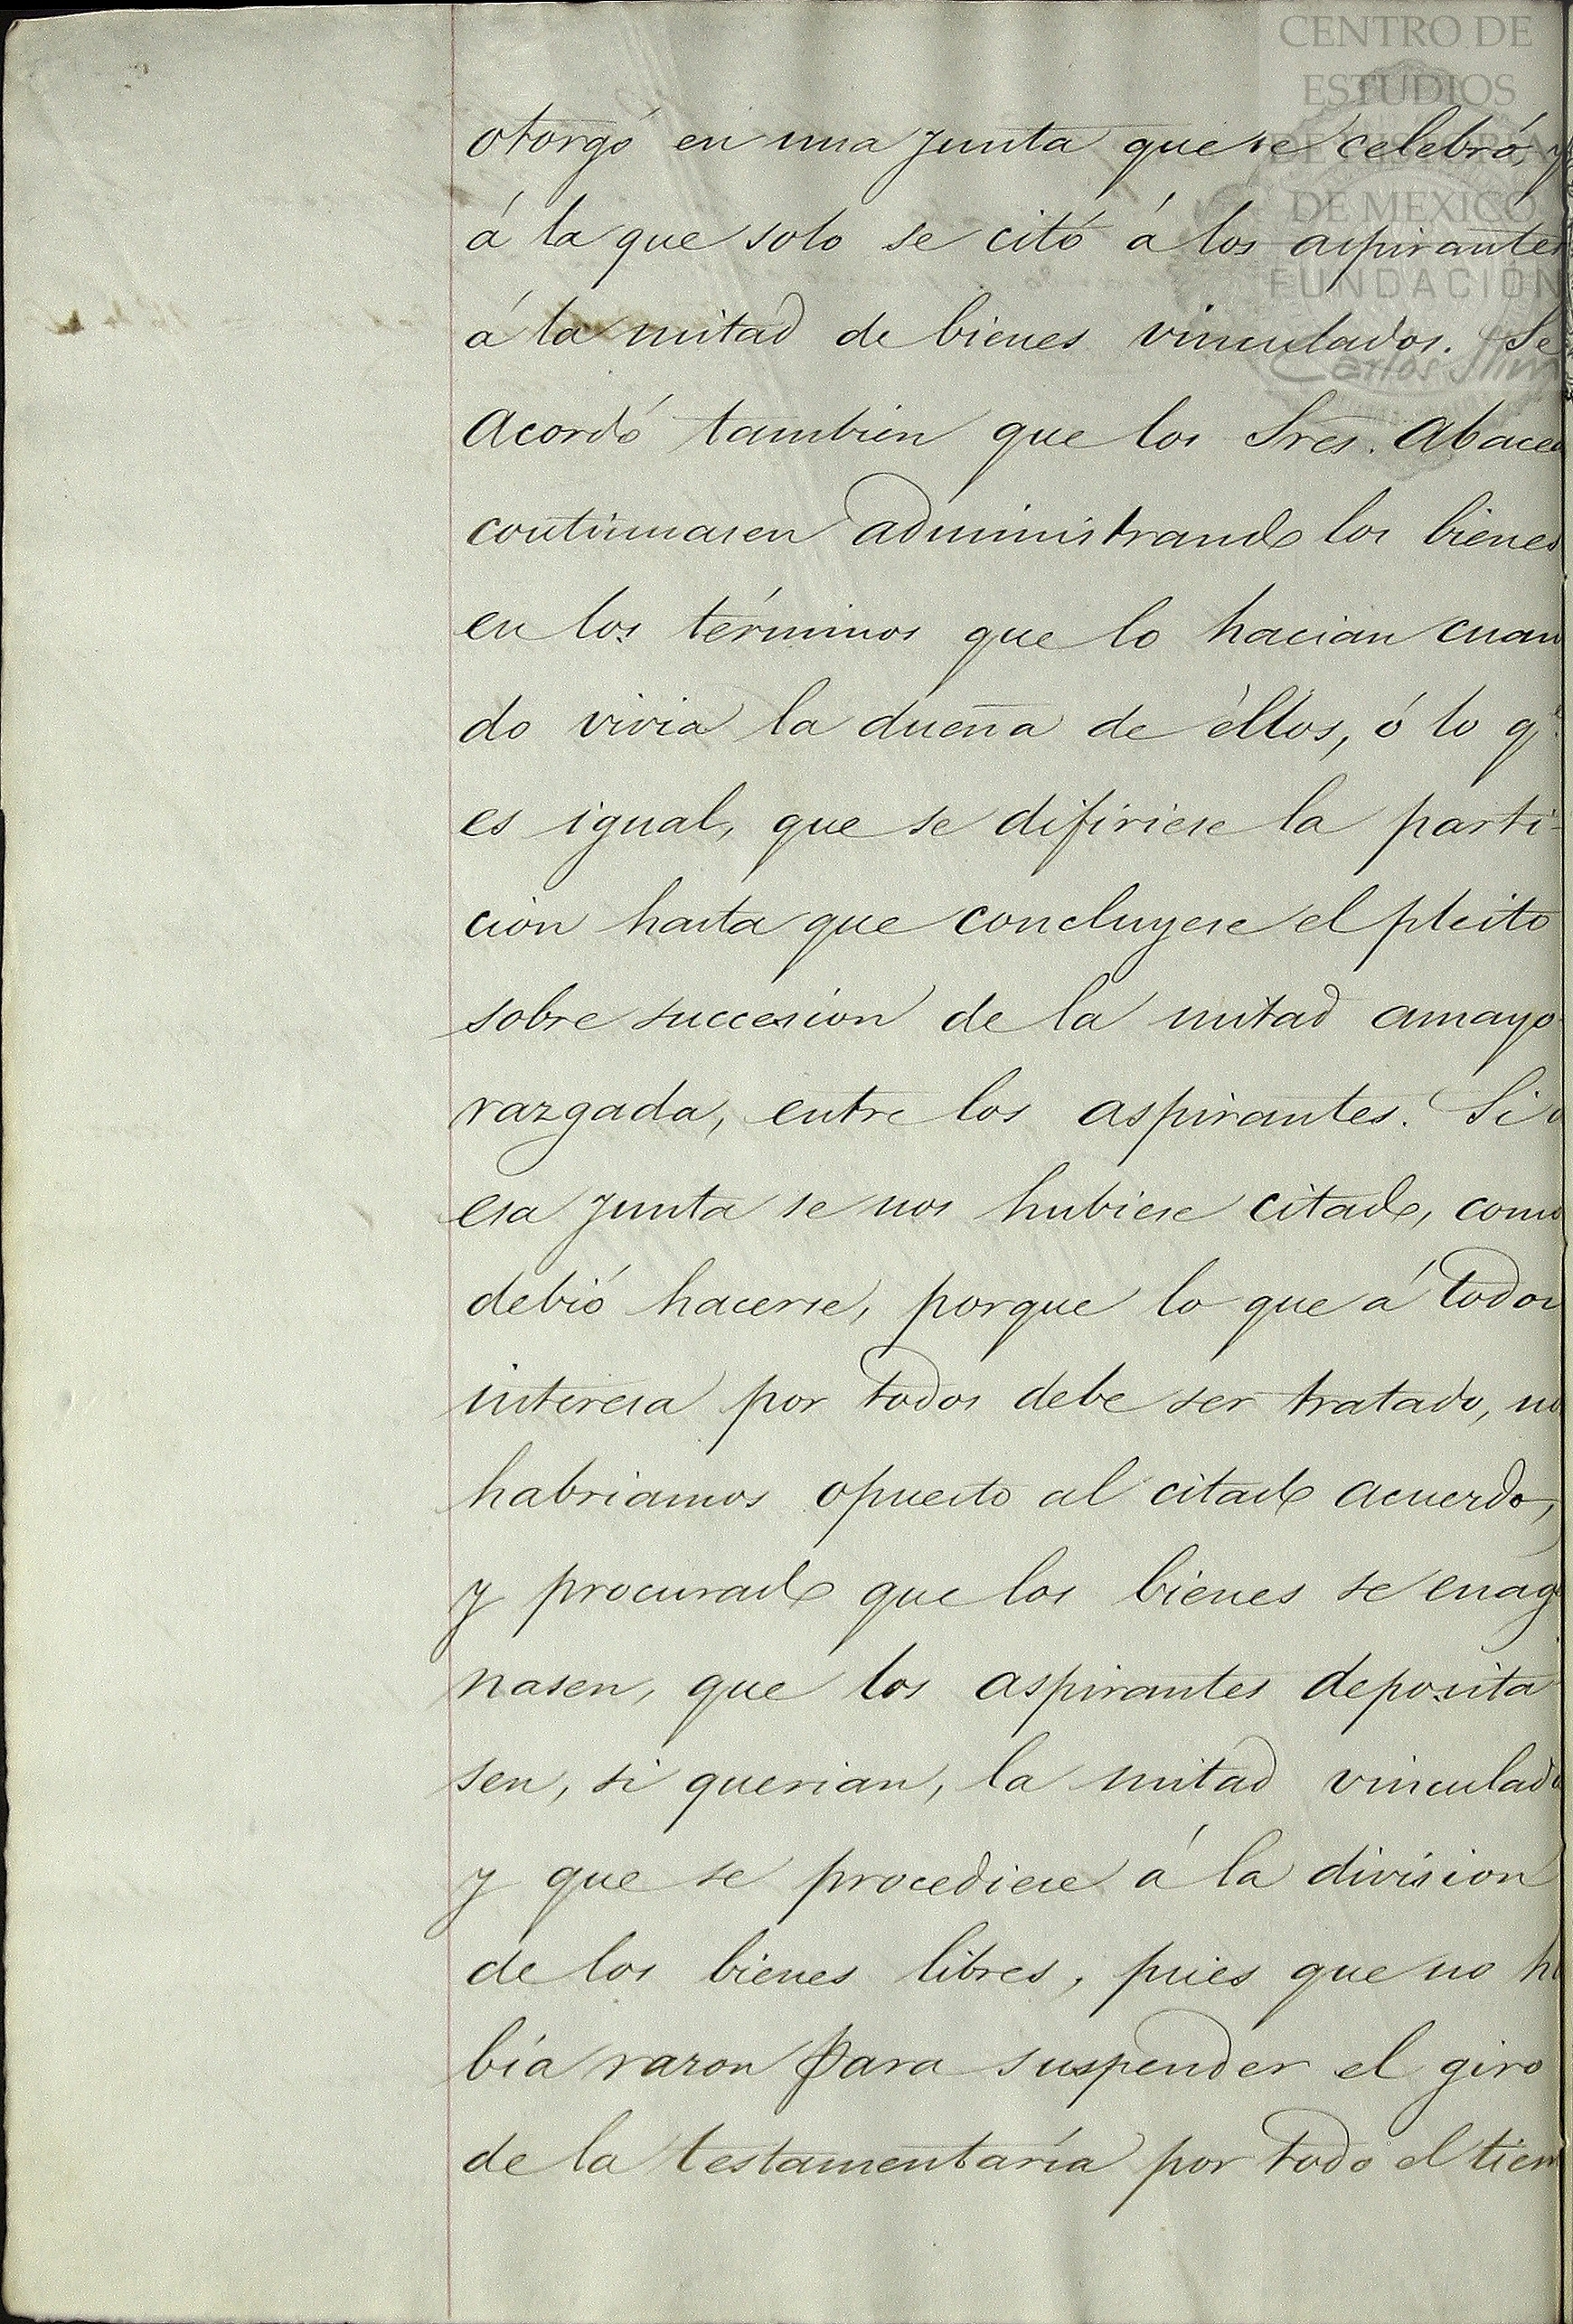 CENTRO DE
ESTUDIOS
DE HISTORIA
DE MEXICO
FUNDACIÓN
Carlos Slim
otorgó en una junta que se celebró, y
á la que solo se citó á los aspirantes
á la mitad de bienes vinculados. Se
acordó tambien que los Sres. Abacea
continuasen administrando los bienes
en los términos que lo hacian cuan
do vivia la dueña de éllos, ó lo qe.
es igual, que se difiriese la parti-
cion hasta que concluyese el pleito
sobre succesion de la mitad amayo
razgada, entre los aspirantes. Si a
esa junta se nos hubiese citado, como
debió hacerse, porque lo que á todos
interesa por todos debe ser tratado, no
habriamos opuesto al citado acuerdo,
y procurado que los bienes se enage
nasen, que los aspirantes deposita
sen, si querian, la mitad vinculada
y que se procediese á la division
de los bienes libres, pues que no ha
bía razon para suspender el giro
de la testamentaría por todo el tiem